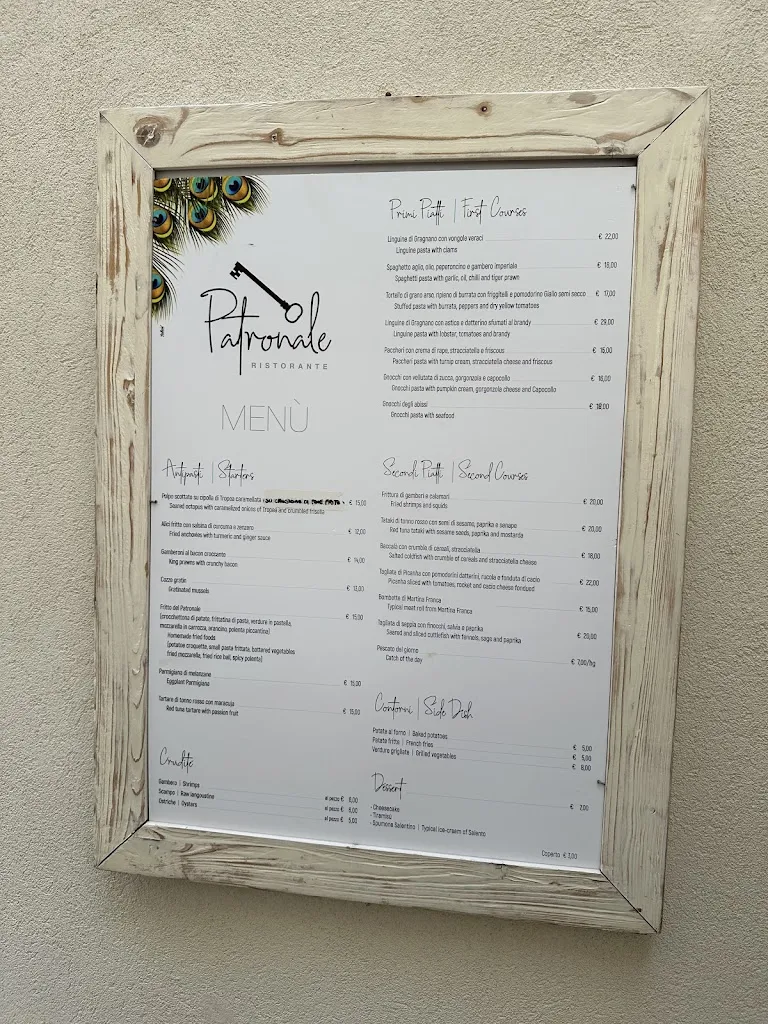 Patronale
RISTORANTE
MENÙ
Antipasti | Starters
Polpo scottato su cipolla di Tropea caramellata € 15,00
Seared octopus with caramelized onions of Tropea and crumbled frisella
Alici fritte con salsina di curcuma e zenzero € 12,00
Fried anchovies with turmeric and ginger sauce
Gamberoni al bacon croccante € 14,00
King prawns with crunchy bacon
Cozze gratin € 13,00
Gratinated mussels
Fritto del Patronale € 15,00
(crocchettona di patate, frittatina di pasta, verdure in pastella,
mozzarella in carrozza, arancino, polenta piccantina)
Homemade fried foods
(potatoes croquette, small pasta frittata, battered vegetables
fried mozzarella, fried rice ball, spicy polenta)
Parmigiana di melanzane € 13,00
Eggplant Parmigiana
Tartare di tonno rosso con maracuja € 15,00
Red tuna tartare with passion fruit
Crudité
Gambero | Shrimps al pezzo € 8,00
Scampo | Raw langoustine al pezzo € 6,00
Ostriche | Oysters al pezzo € 5,00
Primi Piatti | First Courses
Linguine di Gragnano con vongole veraci € 22,00
Linguine pasta with clams
Spaghetto aglio, olio, peperoncino e gambero imperiale € 18,00
Spaghetti pasta with garlic, oil, chilli and tiger prawn
Tortello di grano arso, ripieno di burrata con friggitelli e pomodorino Giallo semi secco € 17,00
Stuffed pasta with burrata, peppers and dry yellow tomatoes
Linguine di Gragnano con astice e datterino sfumati al brandy € 29,00
Linguine pasta with lobster, tomatoes and brandy
Paccheri con crema di rape, stracciatella e friscous € 15,00
Paccheri pasta with turnip cream, stracciatella cheese and friscous
Gnocchi con vellutata di zucca, gorgonzola e capocollo € 16,00
Gnocchi pasta with pumpkin cream, gorgonzola cheese and Capocollo
Gnocchi degli abissi € 18,00
Gnocchi pasta with seafood
Secondi Piatti | Second Courses
Frittura di gamberi e calamari € 20,00
Fried shrimps and squids
Tataki di tonno rosso con semi di sesamo, paprika e senape € 20,00
Red tuna tataki with sesame seeds, paprika and mostarda
Baccalà con crumble di cereali, stracciatella € 18,00
Salted coldfish with crumble of cereals and stracciatella cheese
Tagliata di Picanha con pomodorini datterini, rucola e fonduta di cacio € 22,00
Picanha sliced with tomatoes, rocket and cacio cheese fondued
Bombette di Martina Franca € 15,00
Typical meat roll from Martina Franca
Tagliata di seppia con finocchi, salvia e paprika € 20,00
Seared and sliced cuttlefish with fennels, sage and paprika
Pescato del giorno € 7,00/hg
Catch of the day
Contorni | Side Dish
Patate al forno | Baked potatoes € 5,00
Patate fritte | French fries € 5,00
Verdure grigliate | Grilled vegetables € 6,00
Dessert € 7,00
- Cheesecake
- Tiramisù
- Spumone Salentino | Typical ice-cream of Salento
Coperto € 3,00